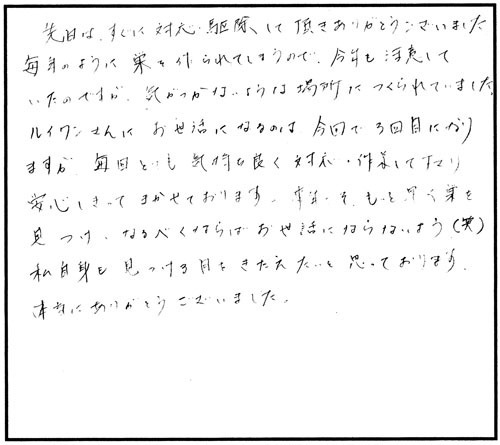 先日は、すぐに対応・駆除して頂きありがとうございました
毎年のように巣を作られてしまうので、今年も注意して
いたのですが、気がつかないような場所につくられていました。
ルイワンさんにお世話になるのは、今回で3回目になり
ますが、毎回とても気持ち良く対応・作業して下さり
安心しきってまかせております。来年こそ、もっと早く巣を
見つけ、なるべくならばお世話にならないよう(笑)
私自身も見つける目をきたえたいと思っております。
本当にありがとうございました。